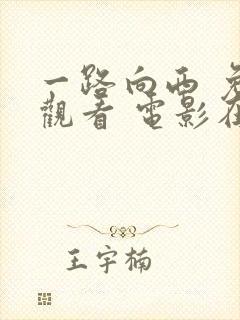 一路向西
觀看 電影
王宇楠